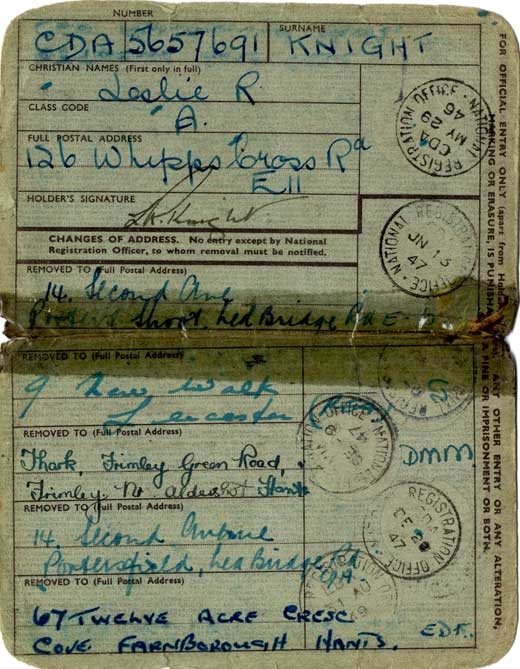 NUMBER SURNAME
CDA 5657691 KNIGHT
CHRISTIAN NAMES (First only in full)
Leslie R
CLASS CODE
A.
FULL POSTAL ADDRESS
126 Whipps Cross Rd
E11
HOLDER'S SIGNATURE
L.R. Knight
CHANGES OF ADDRESS. No entry except by National
Registration Officer, to whom removal must be notified.
REMOVED TO (Full Postal Address)
14. Second Ave
Lea Bridge Rd E
REMOVED TO (Full Postal Address)
9 New Walk
Leicester
REMOVED TO (Full Postal Address)
Thark, Frimley Green Road,
Frimley. Nr. Aldershot Hants
DMM
REMOVED TO (Full Postal Address)
14. Second Avenue
Portersfield, Lea Bridge Rd
REMOVED TO (Full Postal Address)
67 TWELVE ACRE CRESC
COVE FARNBOROUGH HANTS.
EDF.
NATIONAL REGISTRATION OFFICE
CDA
MY 29
46
NATIONAL REGISTRATION OFFICE
JN 13
47
NATIONAL
OFFICE
SE
47
REGISTRATION OFFICE
DE 29
47
REGISTRATION
FOR OFFICIAL ENTRY ONLY (apart from Holder's
ANY OTHER ENTRY OR ANY ALTERATION,
MARKING OR ERASURE, IS PUNISHABLE
A FINE OR IMPRISONMENT OR BOTH.